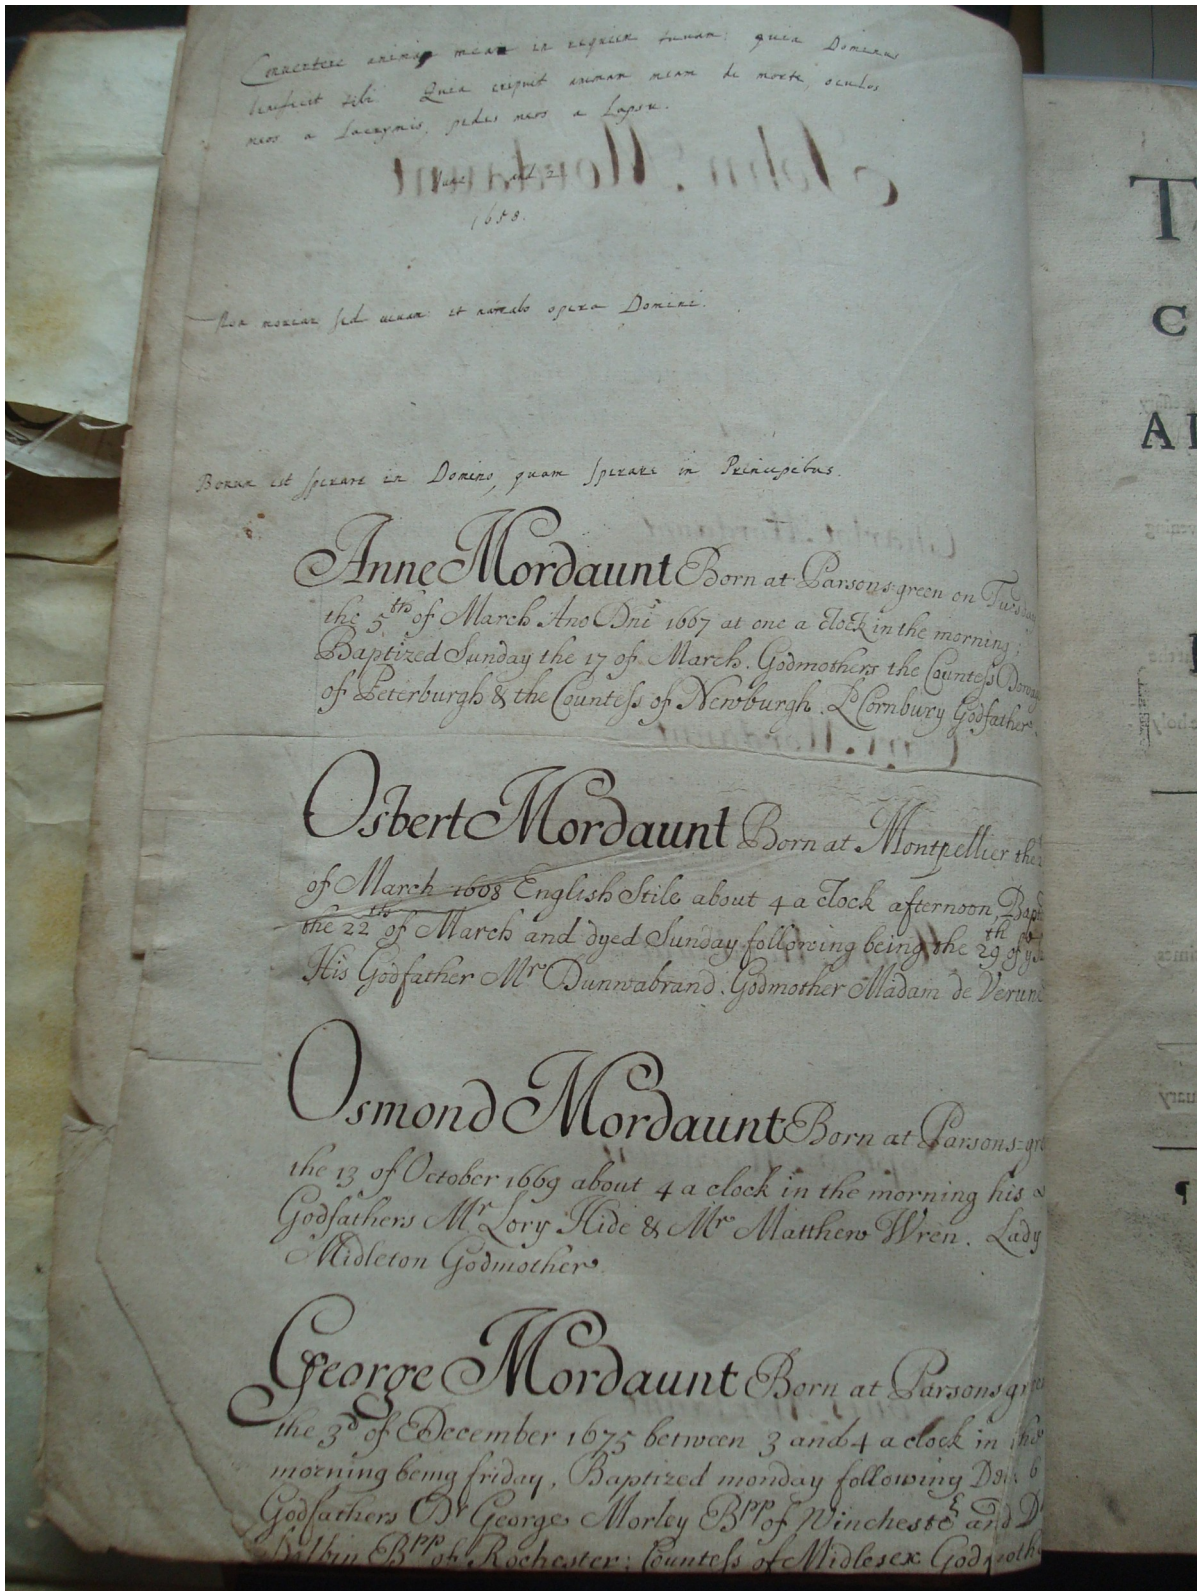 Convertere anima mea in requiem tuam: quia Dominus
benefecit tibi Quia eripuit animam meam de morte, oculos
meos a Lacrymis, pedes meos a Lapsu.
John Mordaunt
June 2
1658.
Non moriar sed vivam et narrabo opera Domini.
Bonum est sperare in Domino, quam sperare in Principibus.
Charles Mordaunt
Anne Mordaunt Born at Parsons-green on Tuesday
the 5th of March Ano Dni 1667 at one a clock in the morning;
Baptized Sunday the 17 of March. Godmothers the Countess
of Peterburgh & the Countess of Newburgh. Ld Cornbury Godfather.
Mordaunt
Osbert Mordaunt Born at Montpellier the
of March 1668 English Stile about 4 a clock afternoon,
the 22th of March and dyed Sunday following being the 29th of
His Godfather Mr Dunwabrand. Godmother Madam de
Osmond Mordaunt Born at Parsons=
the 13 of October 1669 about 4 a clock in the morning his
Godfathers Mr Lory Hide & Mr Matthew Wren. Lady
Midleton Godmother
George Mordaunt Born at Parsons
the 3d of December 1675 between 3 and 4 a clock in the
morning being friday, Baptized monday following Dec. 6
Godfathers Dr George Morley Bpp of Winchester and Dr
Dolbin Bpp of Rochester: Countess of Midlesex
T
C
A
¶